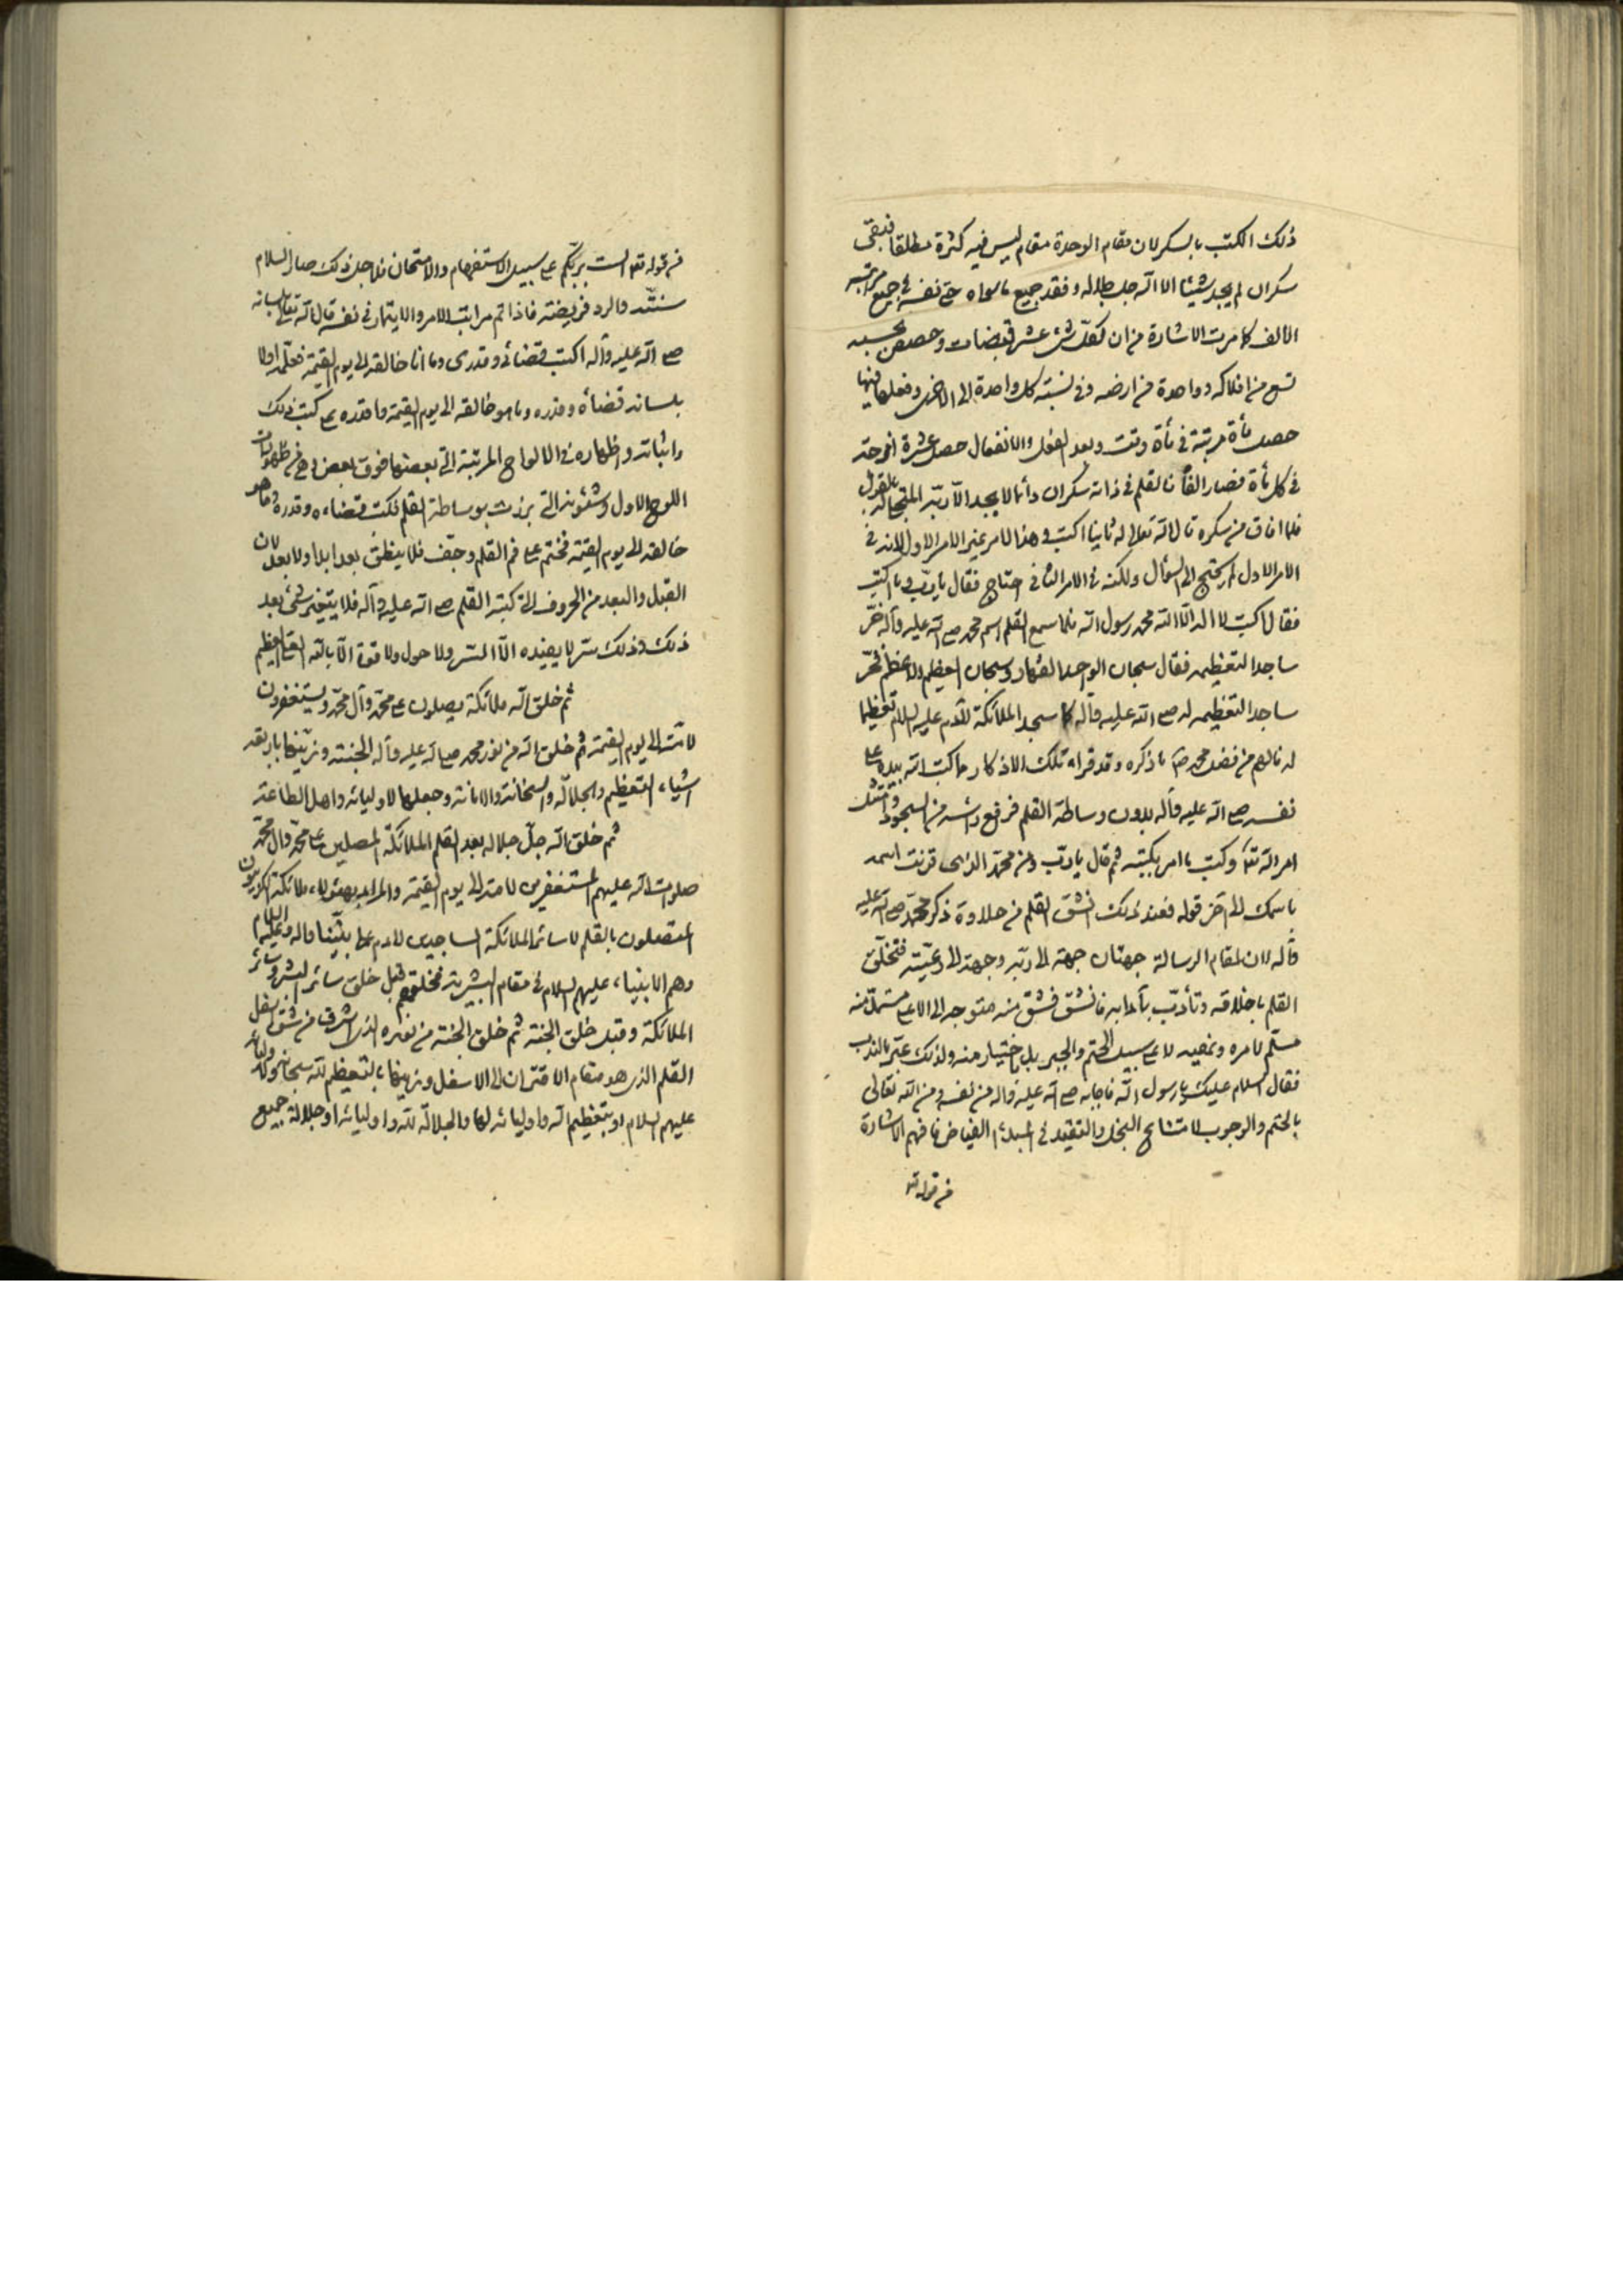 ذلك الكتب بالسكر لان مقام الوحدة مقام ليس فيه كثرة مطلقا فبقى
سكران لم يجد شيئا الا الله جل جلاله وفقد جميع ماسواه حتى نفسه في جميع مراتبه
الالف كما مرت الاشارة من ان لكل شئ عشر قبضات وحصص بحسبه
تسع من افلاكه وواحدة من ارضه وفي نسبته كل واحدة الى الاخرى وفعلها فيها
حصل مأة مرتبة في مأة وقت وبعد الفعل والانفعال حصل عشرة اخرى
في كل مأة فصار الفا فالقلم في ذاته سكران دائما لا يجد الا ربه المتجلى له بالقول
فلما افاق من سكره قال الله تعالى له ثانيا اكتب وهذا الامر غير الامر الاول لانه في
الامر الاول لم يحتج الى السؤال ولكنه في الامر الثاني احتاج فقال يا رب وما اكتب
فقال اكتب لا اله الا الله محمد رسول الله فلما سمع القلم اسم محمد ص الله عليه وآله خرّ
ساجدا لتعظيمه فقال سبحان الواحد القهار وسبحان العظيم الاعظم فخرّ
ساجدا لتعظيمه له ص الله عليه وآله كما سجد الملائكة لآدم عليه السلام تعظيما
له نالهم من فضل محمد ص ما ذكره وقد قراء تلك الاذكار وما كتب الله بيده على
نفسه ص الله عليه وآله بدون وساطة القلم فرفع رأسه من السجود وامتثل
امر الله تع وكتب ما امر بكتبه ثم قال يا رب ومن محمد الذى قرنت اسمه
باسمك الى آخر قوله فعند ذلك انشق القلم من حلاوة ذكر محمد ص الله عليه
وآله لان لمقام الرسالة جهتان جهة الى ربه وجهة الى رعيته فتخلق
القلم باخلاقه وتأدب بآدابه فانشق فشق منه متوجه الى الاعلى مستمد منه
مسلّم لامره ونهيه لا على سبيل الحتم والجبر بل باختيار منه ولذلك عبر بالندب
فقال السلام عليك يا رسول الله فاجابه ص الله عليه وآله من نفسه ومن الله تعالى
بالحتم والوجوب لامتناع البخل والتقيد في المبدء الفياض فافهم الاشارة
في قوله تع
في قوله تع الست بربكم على سبيل الاستفهام والامتحان فلاجل ذلك صار السلام
سنته والرد فريضة فاذا تم مراتب الامر والايتمار في نفسه قال الله تعالى بلسانه
ص الله عليه وآله اكتب قضائى وقدرى وما انا خالقه الى يوم القيمة فعلمه اولا
بلسانه قضاءه وقدره وما هو خالقه الى يوم القيمة وما قدره ثم كتب ذلك
واثباته واظهاره في الالواح المرتبة التى بعضها فوق بعض وهي من ظهورات
اللوح الاول وشئونه التى برزت بوساطة القلم فكتب قضاءه وقدره وما هو
خالقه الى يوم القيمة فختم على فم القلم وجفّ فلا ينطق بعد ابدا ولا بعد لان
القبل والبعد من الحروف التى كتبه القلم ص الله عليه وآله فلا يتغير شئ بعد
ذلك وذلك سر لا يفيده الا السر ولا حول ولا قوة الا بالله العلى العظيم
ثم خلق الله ملائكة يصلون على محمد وآل محمد ويستغفرون
لامته الى يوم القيمة ثم خلق الله من نور محمد ص الله عليه وآله الجنة وزينها باربعة
اشياء التعظيم والجلالة والسخاء والامانة وجعلها لاوليائه واهل الطاعة
ثم خلق الله جل جلاله بعد القلم الملائكة المصلين على محمد وال محمد
صلوات الله عليهم المستغفرين لامته الى يوم القيمة والمراد بهؤلاء ملائكة الكروبيون
المتصلون بالقلم لا سائر الملائكة الساجدين لادم على نبينا وآله وعليه السلام
وهم الانبياء عليهم السلام في مقام البشرية فخلقهم قبل خلق سائر البشر وسائر
الملائكة وقبل خلق الجنة ثم خلق الجنة من نوره الذى اشرق من شق اسفل
القلم الذى هو مقام الاقتران الى الاسفل وزينها بالتعظيم لله سبحانه ولاوليائه
عليهم السلام او بتعظيم الله واوليائه لها والجلالة لله واوليائه او جلالة جميع